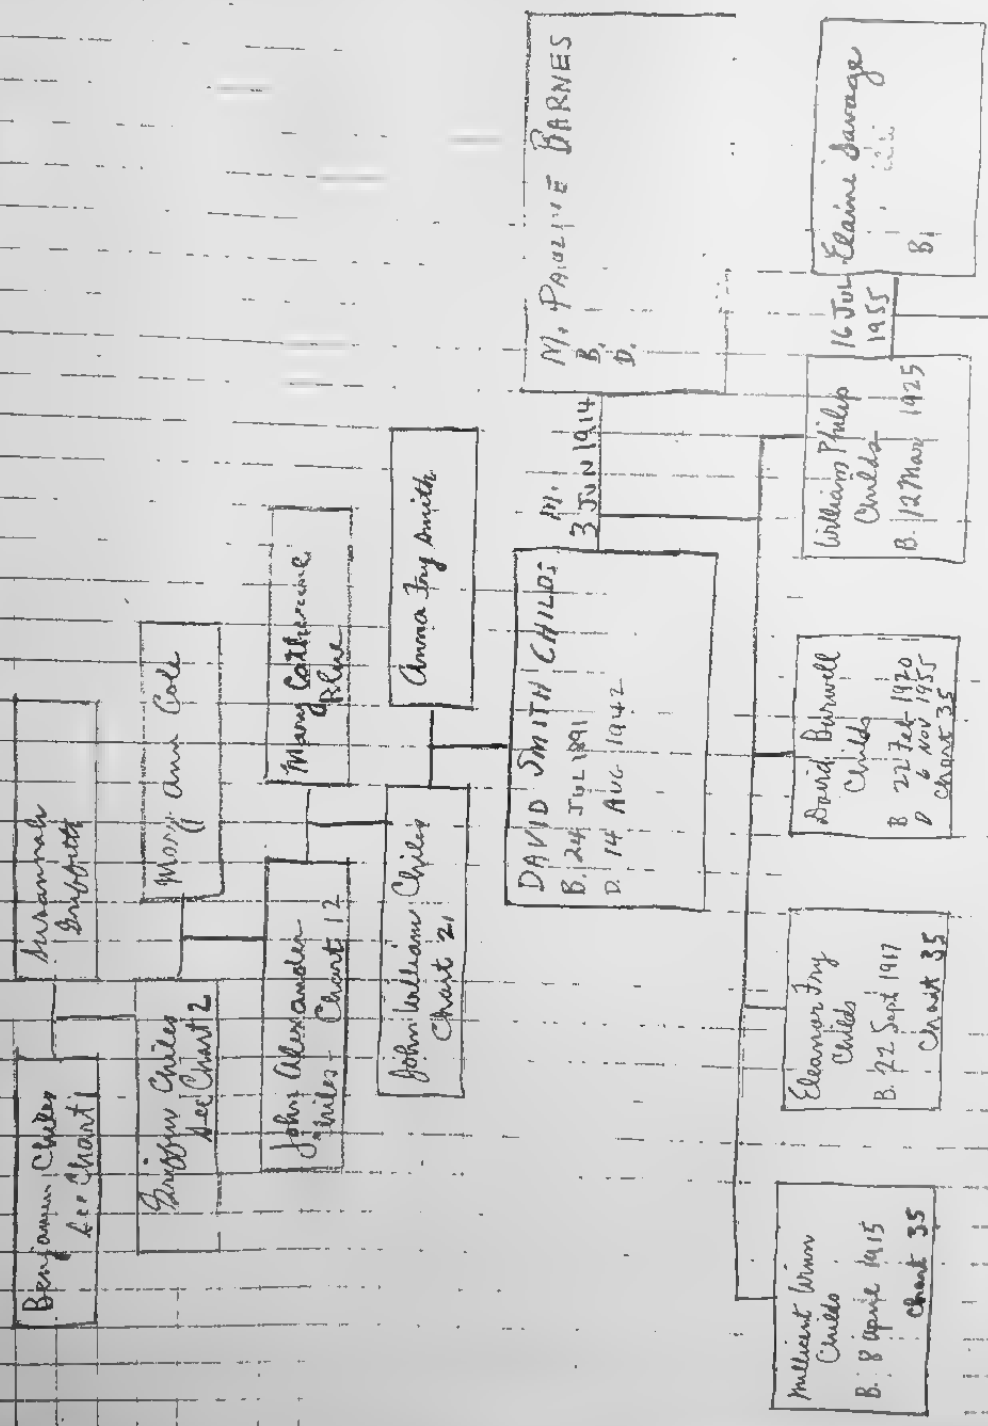 Benjamin Chiles
See Chart 1
Susannah
Griffith
Chiles
See Chart 2
Mary Ann Cole
John Alexander
Chiles Chart 12
Mary Catherine
Blue
John William Chiles
Chart 21
Anna Fry Smith
DAVID SMITH CHILDS
B. 24 JUL 1891
D. 14 AUG 1942
M.
3 JUN 1914
M. PAULINE BARNES
B.
D.
Millicent Winn
Childs
B. 8 April 1915
Chart 35
Eleanor Fry
Childs
B. 22 Sept 1917
Chart 35
David Burwell
Childs
B 22 Feb 1920
D 6 NOV 1955
Chart 35
William Philip
Childs
B. 12 Mar 1925
16 JUL
1955
Elaine Savage
B